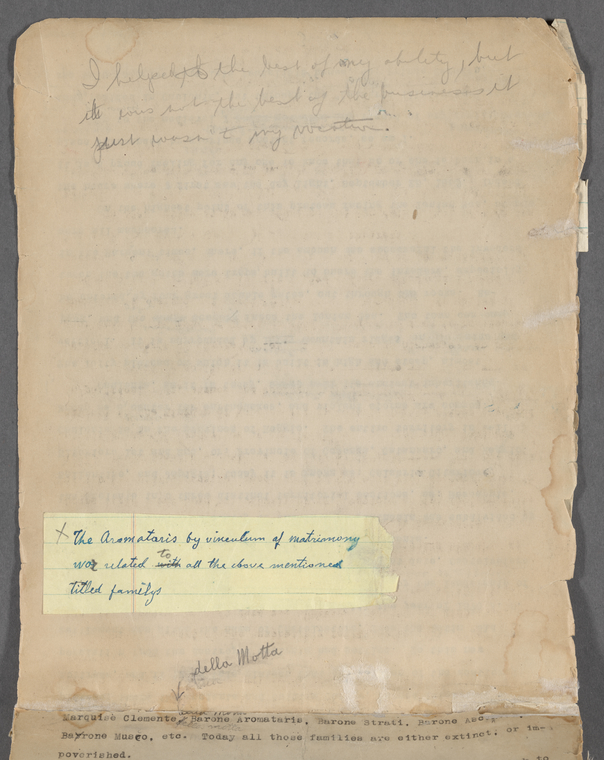 I helped to the best of my ability, but
it was not the best of the business it
just wasn't my vocation.
X The Aromataris by vinculum of matrimony
war related with to all the above mentioned
titled familys
della Motta
Marquise Clemente, Barone Aromataris, Barone Strati, Barone Asc-
Barrone Musco, etc. Today all those families are either extinct, or im-
poverished.
to